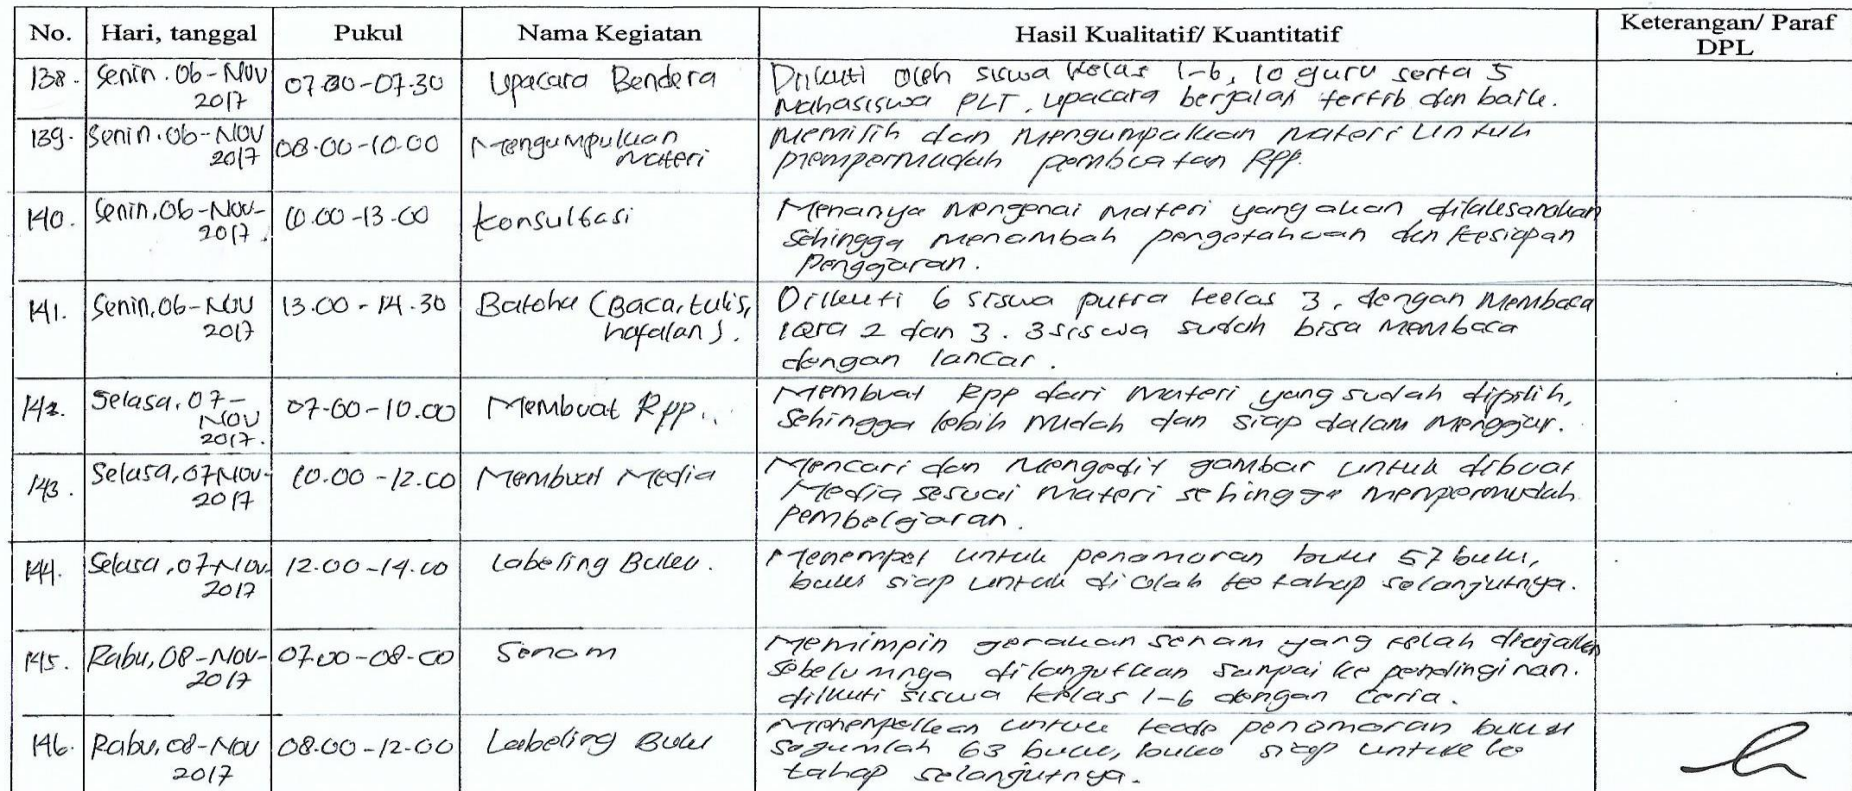 No. Hari, tanggal Pukul Nama Kegiatan Hasil Kualitatif/ Kuantitatif Keterangan/ Paraf DPL
138. Senin. 06-Nov 2017 07.00-07.30 Upacara Bendera Diikuti oleh siswa kelas 1-6, 10 guru serta 5
Mahasiswa PLT, upacara berjalan tertib dan baik.
139. Senin. 06-Nov 2017 08.00-10.00 Mengumpulkan Materi Memilih dan Mengumpulkan Materi untuk
mempermudah pembuatan RPP.
140. Senin, 06-Nov-2017. 10.00-13.00 Konsultasi Menanya Mengenai Materi yang akan dilaksanakan
Sehingga menambah pengetahuan dan kesiapan
Pengajaran.
141. Senin, 06-Nov 2017 13.00-14.30 Batoha (Baca, tulis, hafalan). Diikuti 6 siswa putra kelas 3, dengan Membaca
iqra 2 dan 3. 3 siswa sudah bisa Membaca
dengan lancar.
142. Selasa, 07-Nov 2017. 07.00-10.00 Membuat Rpp.. Membuat Rpp dari Materi yang sudah dipilih,
Sehingga lebih mudah dan siap dalam Mengajar.
143. Selasa, 07 Nov-2017 10.00-12.00 Membuat Media Mencari dan Mengedit gambar untuk dibuat
Media sesuai Materi sehingga mempermudah
pembelajaran.
144. Selasa, 07-Nov 2017 12.00-14.00 Labeling Buku. Menempel untuk penomoran buku 57 buku,
buku siap untuk diolah ke tahap selanjutnya.
145. Rabu, 08-Nov-2017 07.00-08.00 Senam Memimpin gerakan senam yang telah diajarkan
Sebelumnya dilanjutkan sampai ke pendinginan.
diikuti siswa kelas 1-6 dengan Ceria.
146. Rabu, 08-Nov 2017 08.00-12.00 Labeling Buku Menempelkan untuk kode penomoran buku
Sejumlah 63 buku, buku siap untuk ke
tahap selanjutnya.